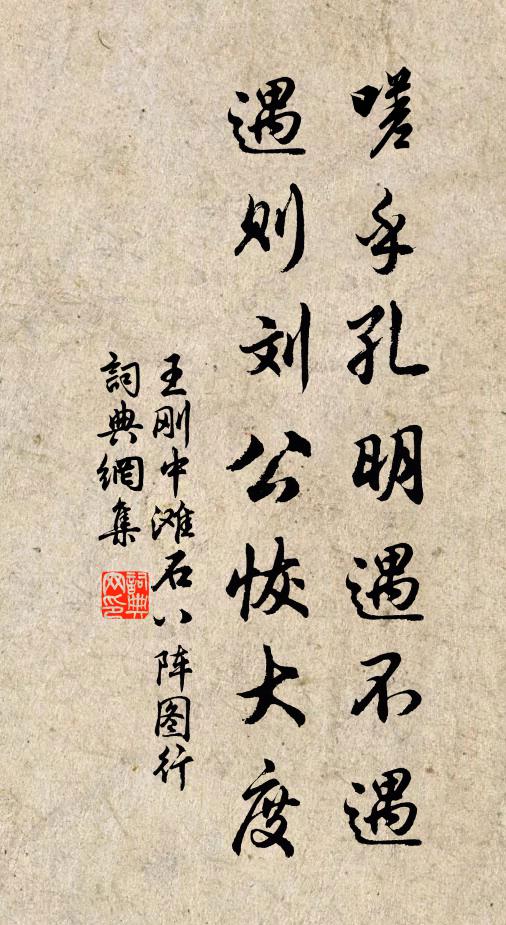 嗟乎孔明遇不遇
遇则刘公恢大度
王刚中滩石八阵图行
詞典網集
詞典网印